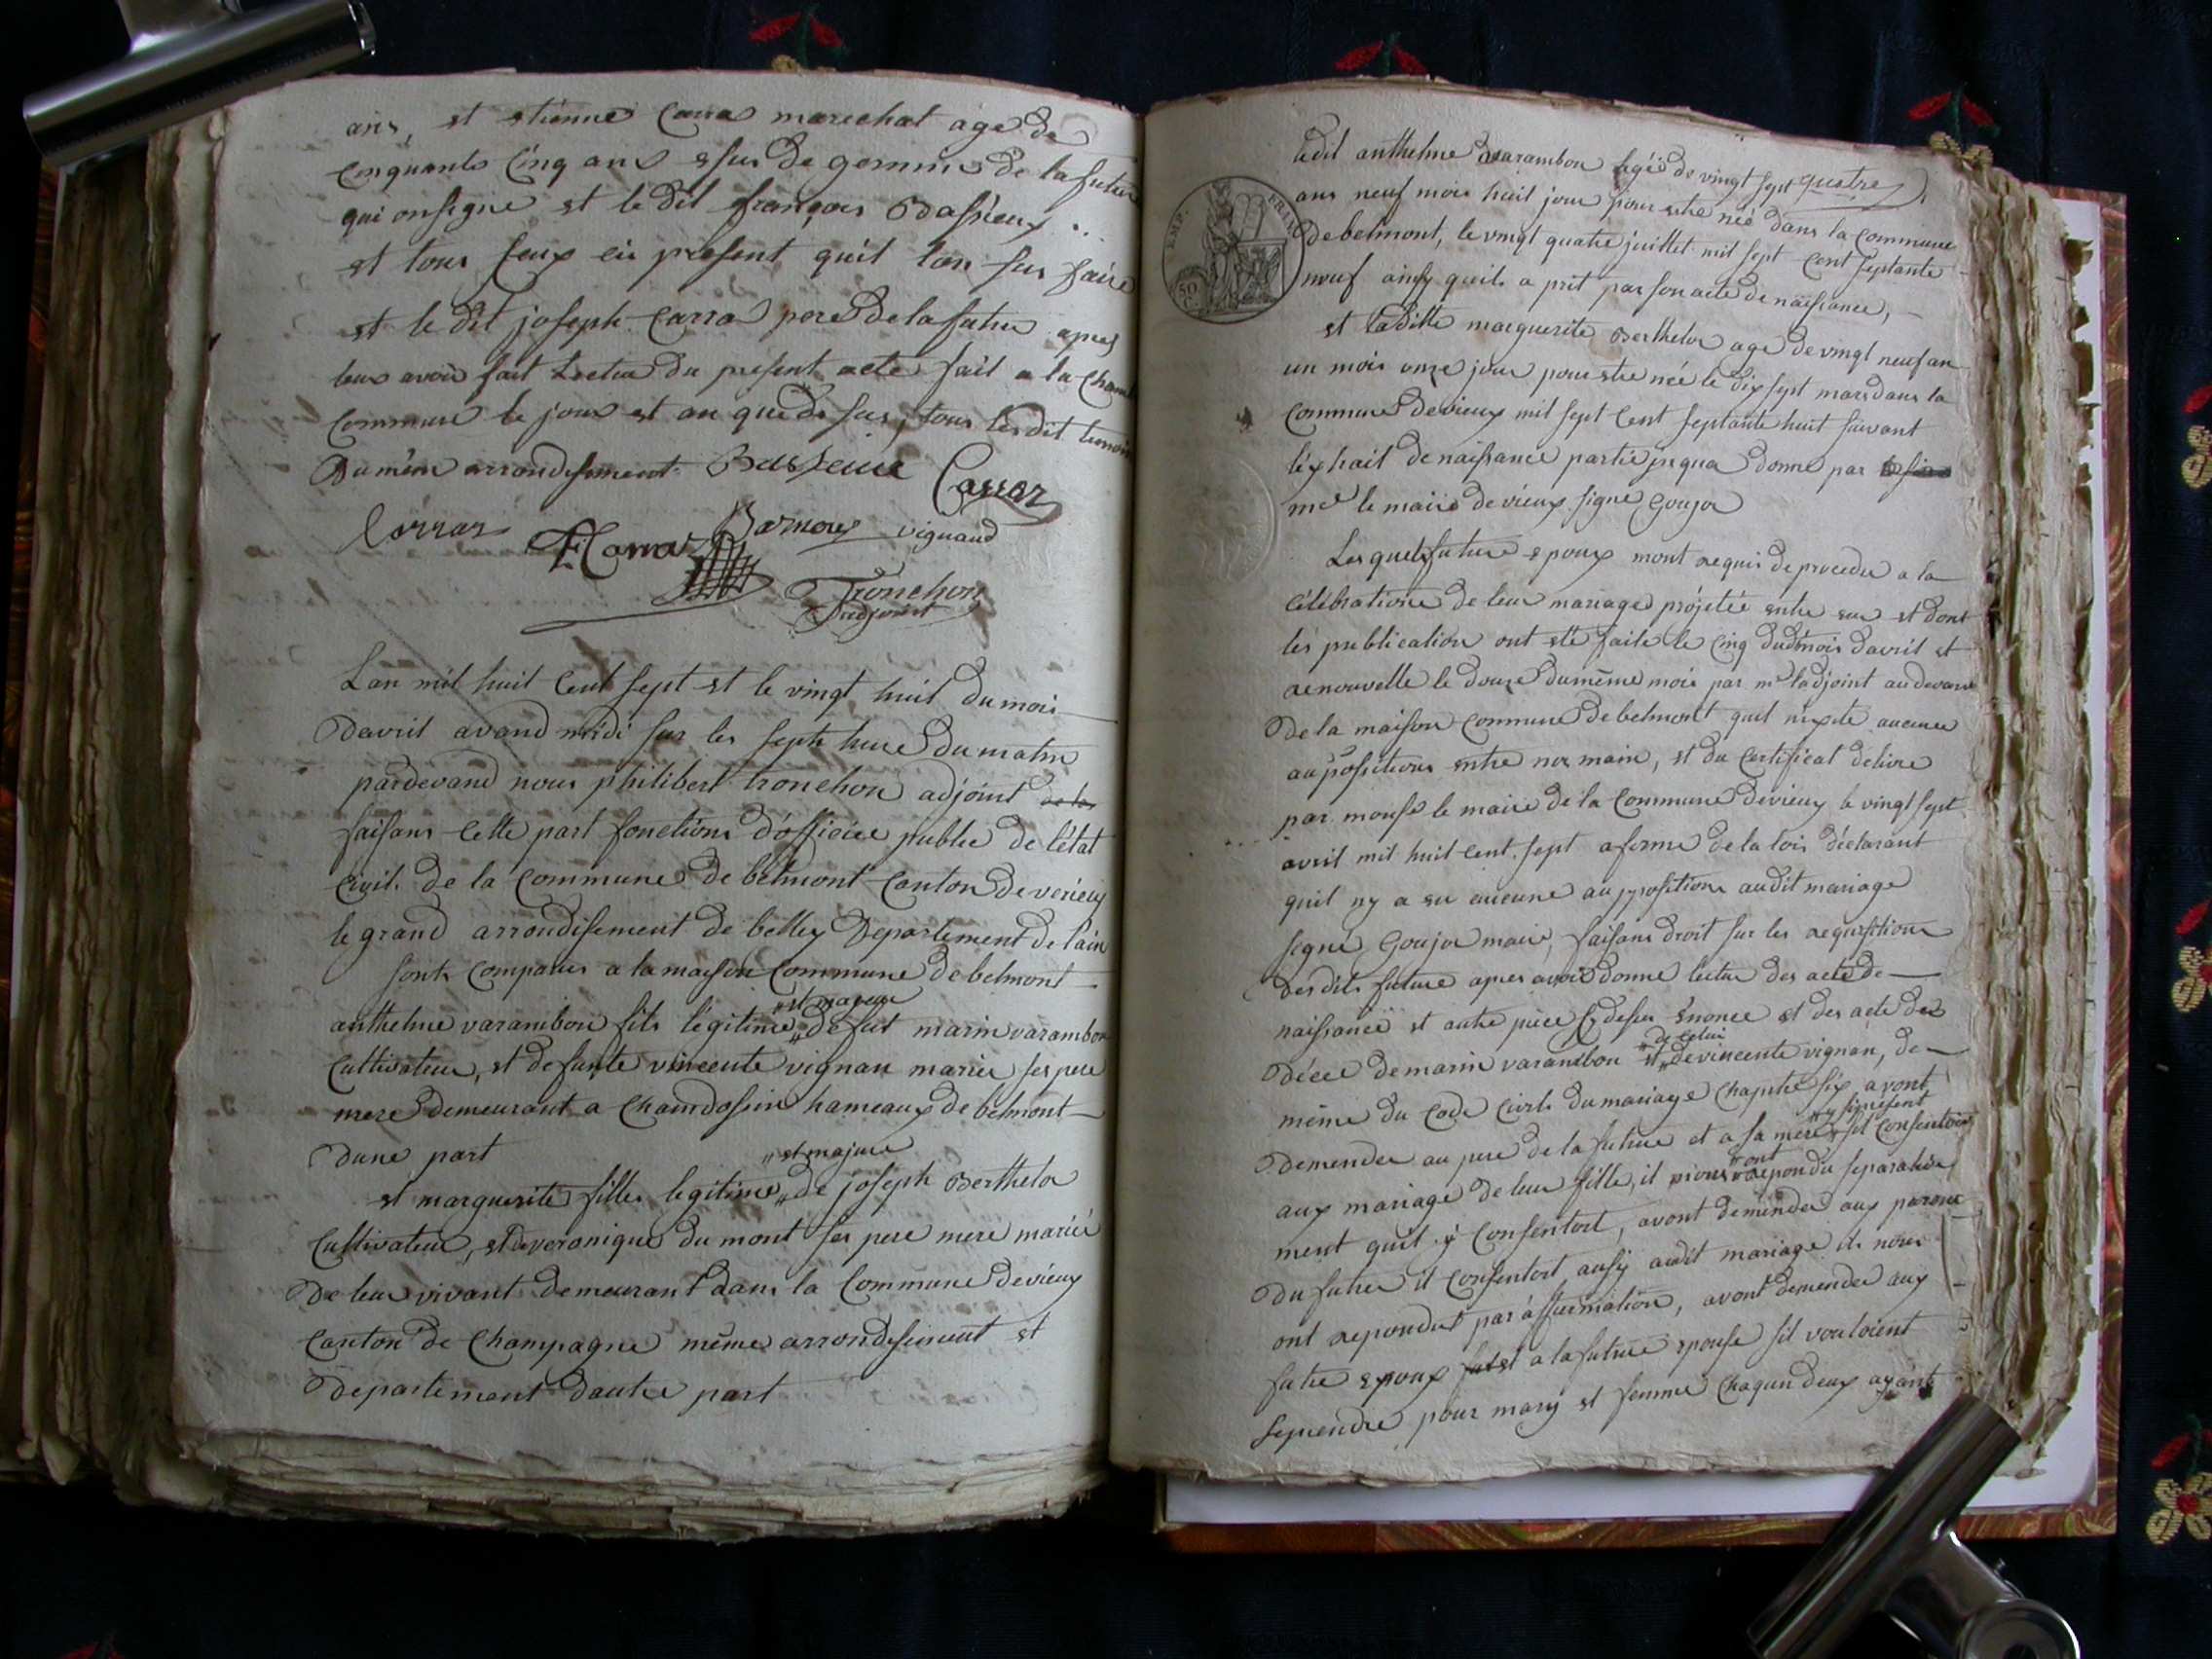 ans, et etienne Carra marechal age de
cinquante cinq ans de germins de la future
qui on signe et le dit françois Dassieux
et tous ceux ci present qui l'on sus faire
et le dit joseph Carra pere de la future apres
leur avoir fait Lecture du present acte fait a la Cham
Commune le jour et an que de sus, tous les dit temoin
Du mêm arrondisement
Carraz
Corraz E Carraz vignaud
Tronchon
adjoint
L'an mil huit Cent sept et le vingt huit du mois
Davril avand midi sur les sept heure Du matin
pardevand nous philibert tronchon adjoint
faisans cette part fonctions d'officiee public de l'état
Civil de la Commune de belmont Canton de virieux
le grand arrondisement de belley Departement de l'ain
sonts comparus a la maison Commune de belmont
et mageur
anthelme varambon fils légitime de fut marin varambon
Cultivateur, et defunte vincente vignau mariés ses pere
mere Demeurant a Chamdossin hameaux de belmont
Dune part
et majure
et marguerite fille legitime de joseph Berthelot
Cultivateur, et de veronique du mont ses pere mere mariés
De leur vivant Demeurant dans la Commune de vieux
Canton de Champagne même arrondisement et
Departement Dautre part
ledit anthelme varambon agés de vingt sept quatre
ans neuf mois huit jour pour etre née dans la Commune
De belmont, le vingt quatre juillet mil sept Cent septante
EMP. FRAN.
50 C
neuf ainsy quils a prit par son acte de naissance,
et laditte marguerite Berthelot age de vingt neuf an
un mois onze jour pour etre née le dix sept mars dans la
Commune de vieux mil sept Cent septante huit suivant
l'éxtrait de naissance donne par
mr le maire de vieux signe Goujor
Les quels future epoux mont requis de proceder a la
Célébratione de leur mariage projetée entre eux et dont
lés publication ont eté faite le Cinq dudt mois davril et
renouvelle le Douze Du même mois par mr ladjoint au devant
De la maison Commune De belmont quil nixste aucune
auposition entre nos main, et du Certificat delivre
par monsr le maire de la Commune De vieux le vingt sept
avril mil huit Cent sept a forme de la lois déclarant
quil ny a eu aucune aupposition audit mariage
signe Goujor maire, faisans droit sur les requisition
Des dits future apres avoir donne lectur des acte de
naissance et autre piece Cy desus énonce et des acte de
de Celui
Décee De marin varambon et de vincente vignau, de
même du Code Civils du mariage Chapitre six avont
y sy present
Demender au pere de la future et a sa mere s'il Consentoit
ont
aux mariage de leur fille, il nous repondu separatée
ment quil y Consentoit, avont demender aux parent
Du futur il Consentoit ausy audit mariage ils nous
ont repondut par affirmation, avont demender aux
futur epoux et a la future epouse sil vouloient
seprendre pour mary et femme Chaqun deux ayant